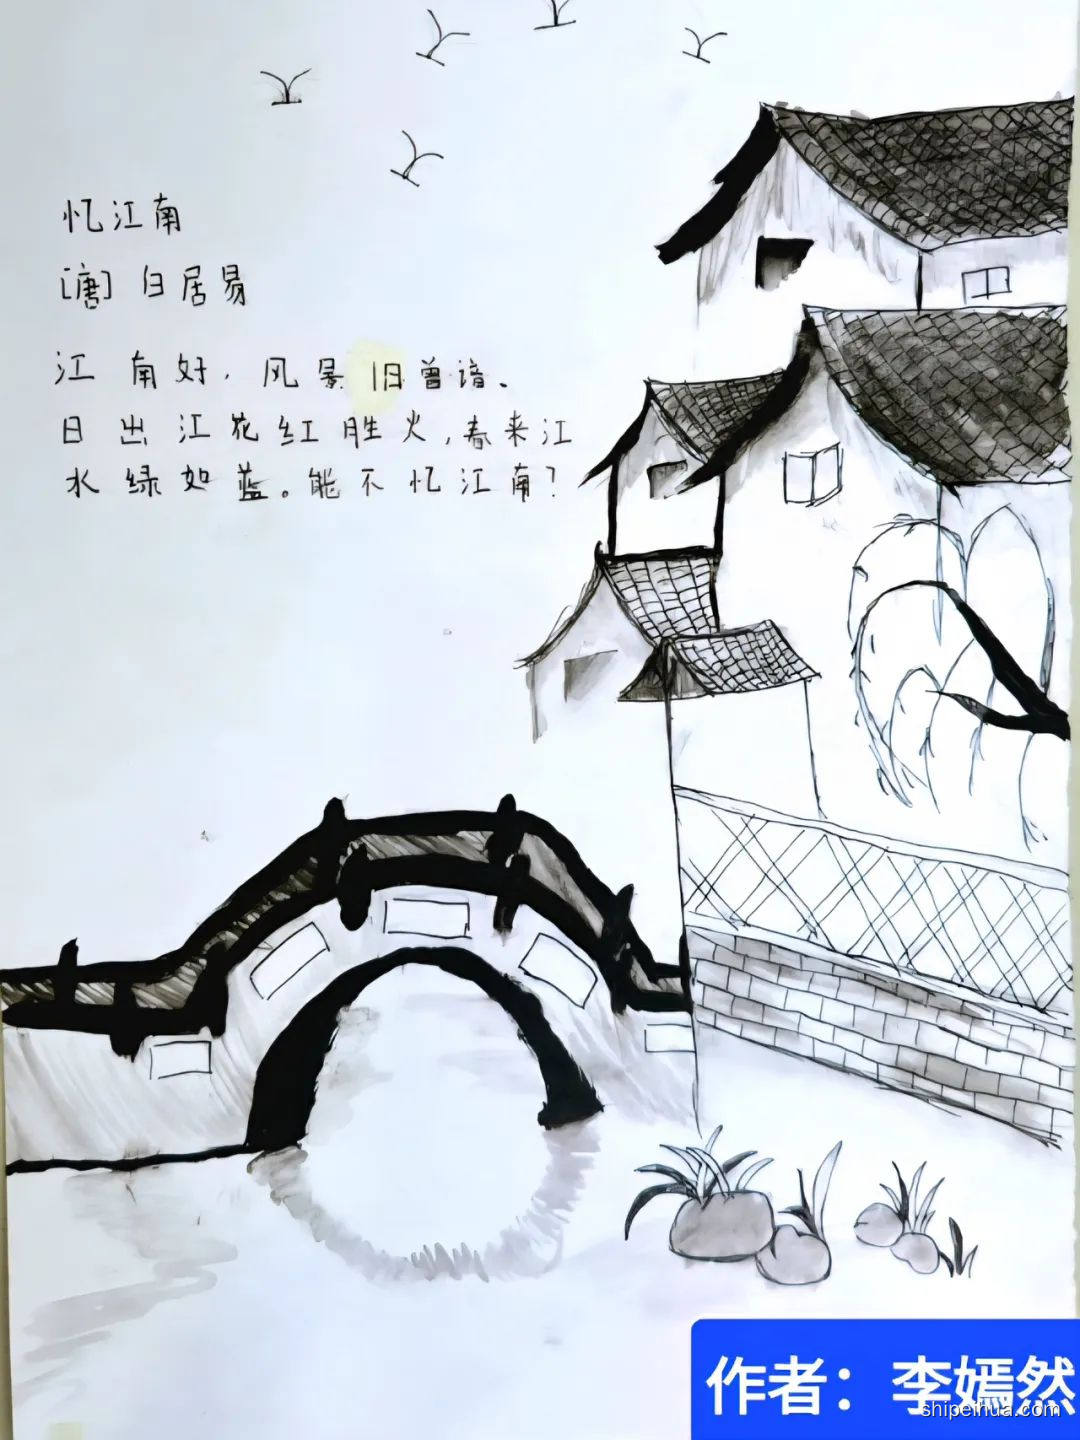 忆江南
[唐] 白居易
江南好，风景旧曾谙、
日出江花红胜火，春来江
水绿如蓝。能不忆江南？
作者：李嫣然
shipeihua.com